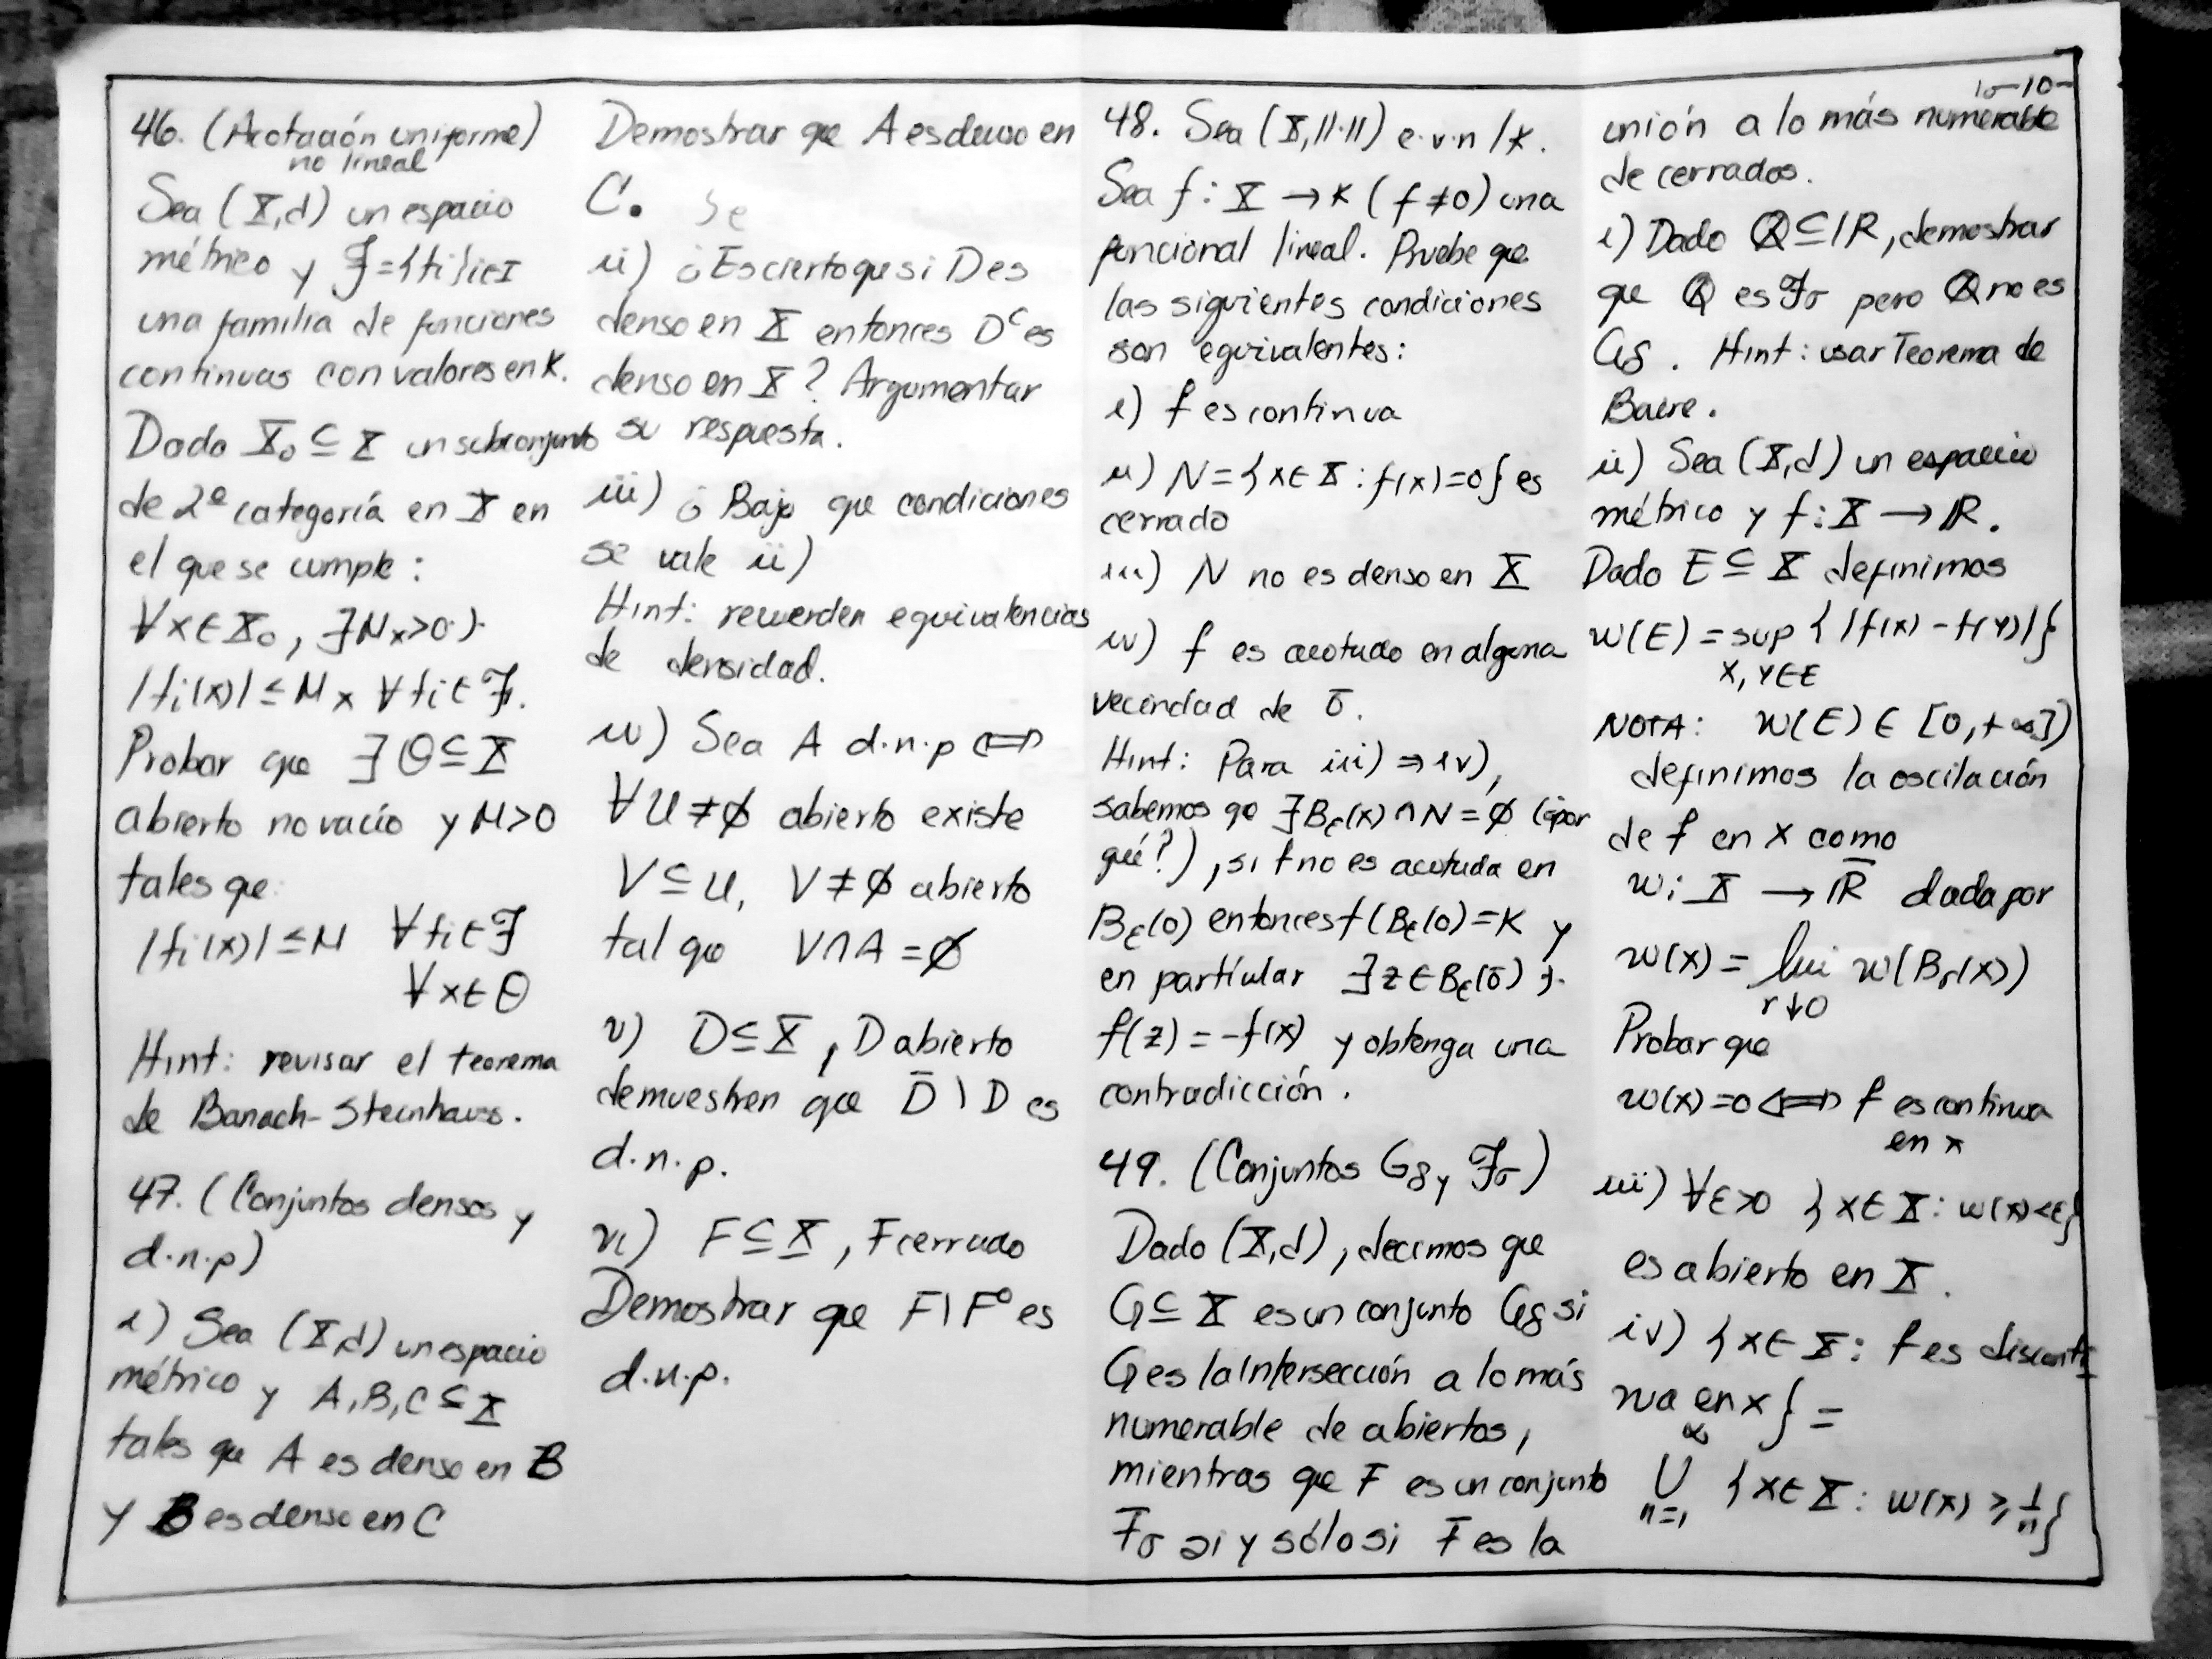 46. (Acotación uniforme)
no lineal
Sea (X,d) un espacio
métrico y F={fi}i∈I
una familia de funciones
continuas con valores en K.
Dado X₀ ⊆ X un subconjunto
de 2ª categoría en X en
el que se cumple:
∀x∈X₀, ∃Mx>0 ∙)∙
|fi(x)| ≤ Mx ∀fi∈F.
Probar que ∃ Θ⊆X
abierto no vacío y M>0
tales que:
|fi(x)| ≤ M ∀fi∈F
∀x∈Θ
Hint: revisar el teorema
de Banach-Steinhauss.
47. (Conjuntos densos y
d.n.p)
i) Sea (X,d) un espacio
métrico y A,B,C ⊆ X
tales que A es denso en B
y B es denso en C
Demostrar que A es denso en
C. Se
ii) ¿Es cierto que si D es
denso en X entonces Dᶜ es
denso en X? Argumentar
su respuesta.
iii) ¿Bajo que condiciones
se vale ii)
Hint: recuerden equivalencias
de densidad.
iv) Sea A d.n.p ⟺
∀U≠∅ abierto existe
V⊆U, V≠∅ abierto
tal que V∩A=∅
v) D⊆X, D abierto
demuestren que D̄ \ D es
d.n.p.
vi) F⊆X, F cerrado
Demostrar que F\F° es
d.n.p.
48. Sea (X,||·||) e.v.n /K.
Sea f: X → K (f≠0) una
funcional lineal. Pruebe que
las siguientes condiciones
son equivalentes:
i) f es continua
ii) N={x∈X : f(x)=0} es
cerrado
iii) N no es denso en X
iv) f es acotado en alguna
vecindad de 0̄.
Hint: Para iii) ⇒ iv),
sabemos qe ∃Bε(x)∩N=∅ (¿por
qué?), si f no es acotada en
Bε(0) entonces f(Bε(0)=K y
en partícular ∃z∈Bε(0̄) ∙)∙
f(z) = -f(x) y obtenga una
contradicción.
49. (Conjuntos Gδ y Fσ)
Dado (X,d), decimos que
G⊆X es un conjunto Gδ si
G es la intersección a lo más
numerable de abiertos,
mientras que F es un conjunto
Fσ si y sólo si F es la
10-10-
unión a lo más numerable
de cerrados.
i) Dado Q⊆IR, demostrar
que Q es Fσ pero Q no es
Gδ. Hint: usar Teorema de
Baire.
ii) Sea (X,d) un espacio
métrico y f: X → IR.
Dado E⊆X definimos
w(E) = sup {|f(x) - f(y)|}
x,y∈E
NOTA: w(E) ∈ [0,+∞])
definimos la oscilación
de f en x como
w: X → IR̄ dada por
w(x) = lim w(Br(x))
r↓0
Probar que
w(x)=0 ⟺ f es continua
en x
iii) ∀ε>0 {x∈X: w(x)<ε}
es abierto en X.
iv) {x∈X: f es disconti
nua en x} =
∞
U {x∈X: w(x) ≥ 1/n}
n=1